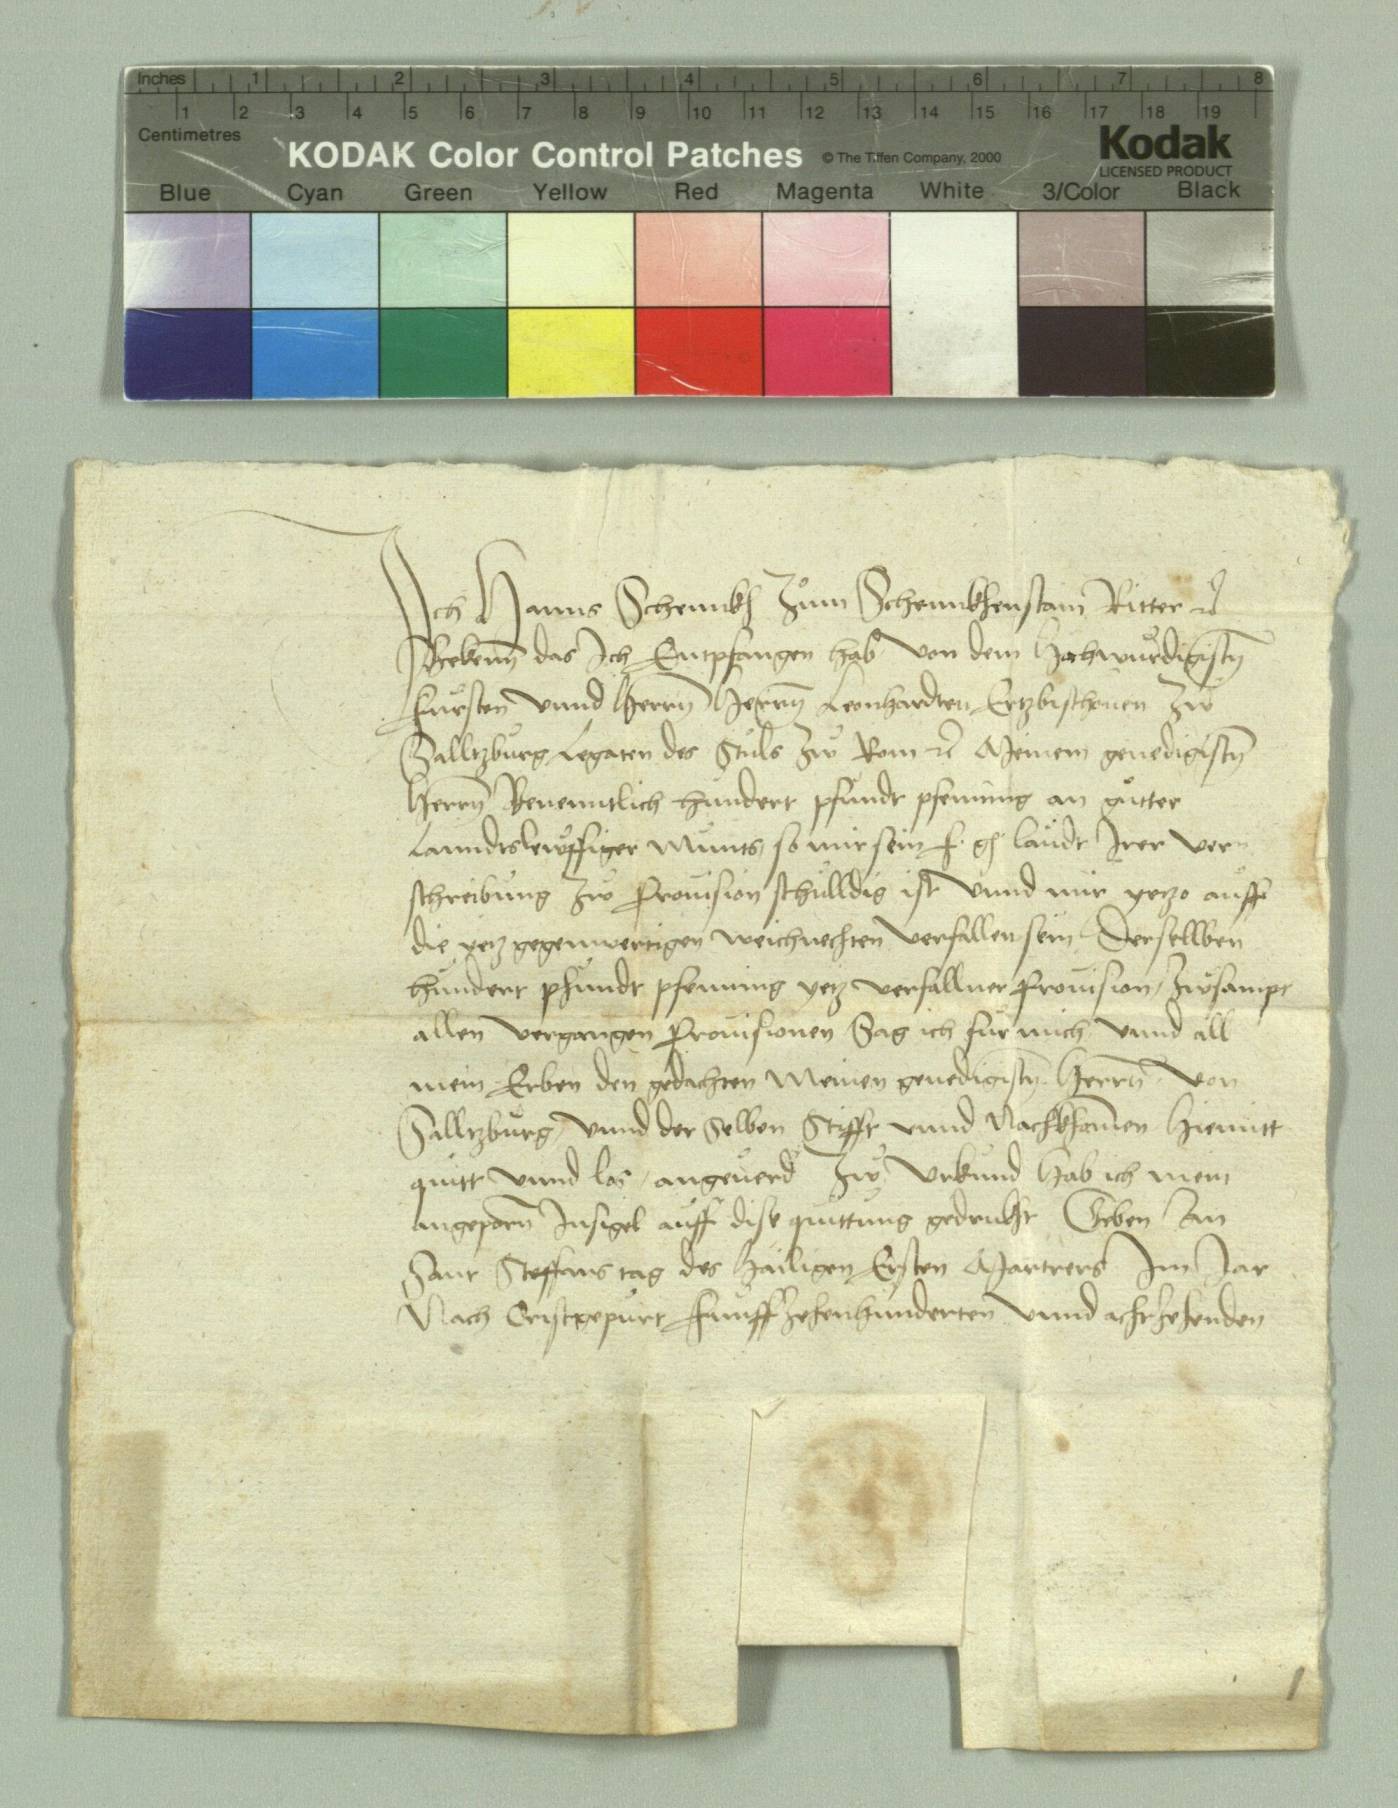 Inches 1 2 3 4 5 6 7 8
1 2 3 4 5 6 7 8 9 10 11 12 13 14 15 16 17 18 19
Centimetres
KODAK Color Control Patches © The Tiffen Company, 2000 Kodak
LICENSED PRODUCT
Blue Cyan Green Yellow Red Magenta White 3/Color Black
Ich Hanns Schennkh zum Schennkhenstain Ritter
Bekenn das Ich Entpfangen hab von dem Hochwurdigistn
fursten vnnd Herrn Herrn Leonhardten Ertzbischouen zw
Salltzburg Legaten des Stuls zw Rom Meinem genedigistn
Herrn Benenntlich hundert pfundt pfenning an gutter
Lanndtslewffiger Munts so mir sein f. g. laudt Irer ver
schreibung zw Prouision schulldig ist vnnd mir yetzo auff
die yetz gegenwertigen weichnechten verfallen sein Derselben
hundert pfundt pfenning yetz verfallner Prouision / zwsampt
allen vergangen Prouisionen Sag ich fur mich vnnd all
mein Erben den gedachten Meinen genedigistn Herrn von
Salltzburg / vnnd der selben Stifft vnnd Nachkhomen hiemitt
quitt vnnd los / angeuerd zw vrkund hab ich mein
angeporn Insigel auff dise quittung gedrukht Geben An
Sant Steffans tag des Hailigen Ersten Martrers Im Jar
Nach Cristgepurt funffzehenhunderten vnnd achtzehenden
1